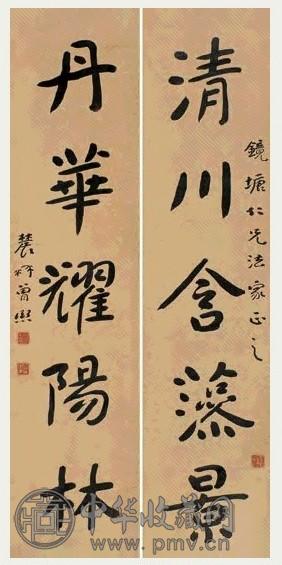 鏡塘仁兄法家正之
清川含藻景
丹華耀陽林
農髯曾熙
中华收藏网
www.pmv.cn